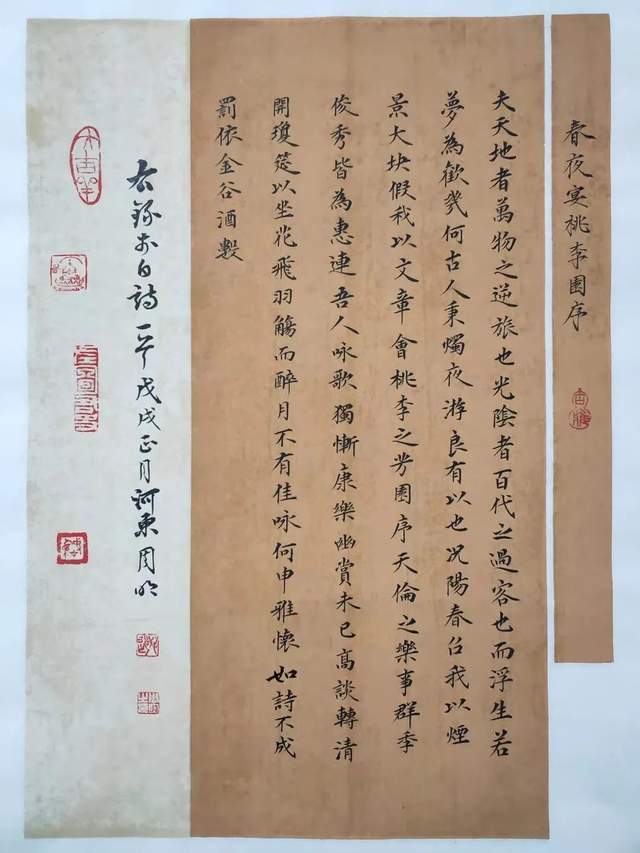 春夜宴桃李園序
夫天地者萬物之逆旅也光陰者百代之過客也而浮生若
夢為歡幾何古人秉燭夜游良有以也况陽春召我以煙
景大块假我以文章會桃李之芳園序天倫之樂事群季
俊秀皆為惠連吾人咏歌獨慚康樂幽賞未已高談轉清
開瓊筵以坐花飛羽觴而醉月不有佳咏何申雅懷如詩不成
罰依金谷酒數
右錄白詩一戊戌正月河東周明
大吉羊